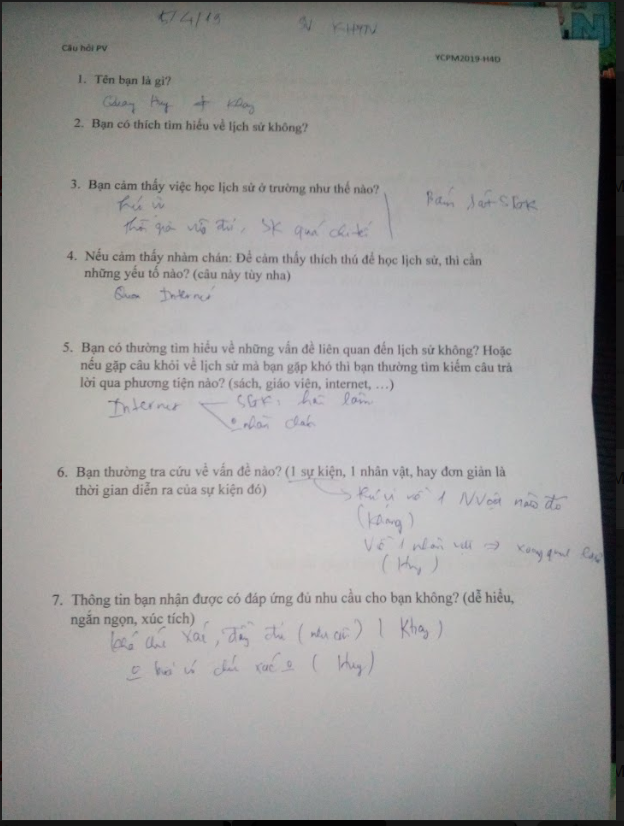 /4/19
SV KHTN
Câu hỏi PV
YCPM2019-H4D
1. Tên bạn là gì?
Quang Huy + Khang
2. Bạn có thích tìm hiểu về lịch sử không?
3. Bạn cảm thấy việc học lịch sử ở trường như thế nào?
Bám sát SGK
SK quá chi tiết
4. Nếu cảm thấy nhàm chán: Để cảm thấy thích thú để học lịch sử, thì cần
những yếu tố nào? (câu này tùy nha)
Qua Internet
5. Bạn có thường tìm hiểu về những vấn đề liên quan đến lịch sử không? Hoặc
nếu gặp câu khỏi về lịch sử mà bạn gặp khó thì bạn thường tìm kiếm câu trả
lời qua phương tiện nào? (sách, giáo viên, internet, …)
Internet SGK:
nhàm chán
6. Bạn thường tra cứu về vấn đề nào? (1 sự kiện, 1 nhân vật, hay đơn giản là
thời gian diễn ra của sự kiện đó)
thú vị về 1 NVật nào đó
(Khang)
Về 1 nhân vật => xung quanh
(Huy)
7. Thông tin bạn nhận được có đáp ứng đủ nhu cầu cho bạn không? (dễ hiểu,
ngắn ngọn, xúc tích)
khá chi xác, đầy đủ (nhu cầu) (Khang)
(Huy)